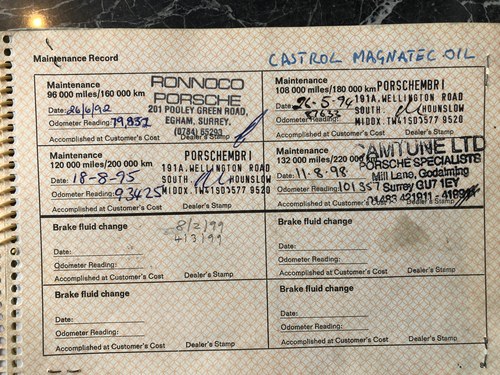 Maintenance Record
CASTROL MAGNATEC OIL
Maintenance
96 000 miles/160 000 km
Date: 26/6/92
Odometer Reading: 79,832
Accomplished at Customer's Cost
Dealer's Stamp
RONNOCO
PORSCHE
201 POOLEY GREEN ROAD,
EGHAM, SURREY.
(0784) 55293
Maintenance
108 000 miles/180 000 km
Date: 26-5-94
Odometer Reading:
Accomplished at Customer's Cost
Dealer's Stamp
PORSCHEMBRI
191A.WELLINGTON ROAD
SOUTH. HOUNSLOW
MIDDX.TW41SD577 9520
Maintenance
120 000 miles/200 000 km
Date: 18-8-95
Odometer Reading: 93425
Accomplished at Customer's Cost
Dealer's Stamp
PORSCHEMBRI
191A.WELLINGTON ROAD
SOUTH. HOUNSLOW
MIDDX.TW41SD577 9520
Maintenance
132 000 miles/220 000 km
Date: 11-8-98
Odometer Reading: 101357
Accomplished at Customer's Cost
CAMTUNE LTD
PORSCHE SPECIALISTS
Mill Lane, Godalming
Surrey GU7 1EY
01483 421911
Brake fluid change
8/2/99
4/3/99
Date:
Odometer Reading:
Accomplished at Customer's Cost
Dealer's Stamp
Brake fluid change
Date:
Odometer Reading:
Accomplished at Customer's Cost
Dealer's Stamp
Brake fluid change
Date:
Odometer Reading:
Accomplished at Customer's Cost
Dealer's Stamp
Brake fluid change
Date:
Odometer Reading:
Accomplished at Customer's Cost
Dealer's Stamp